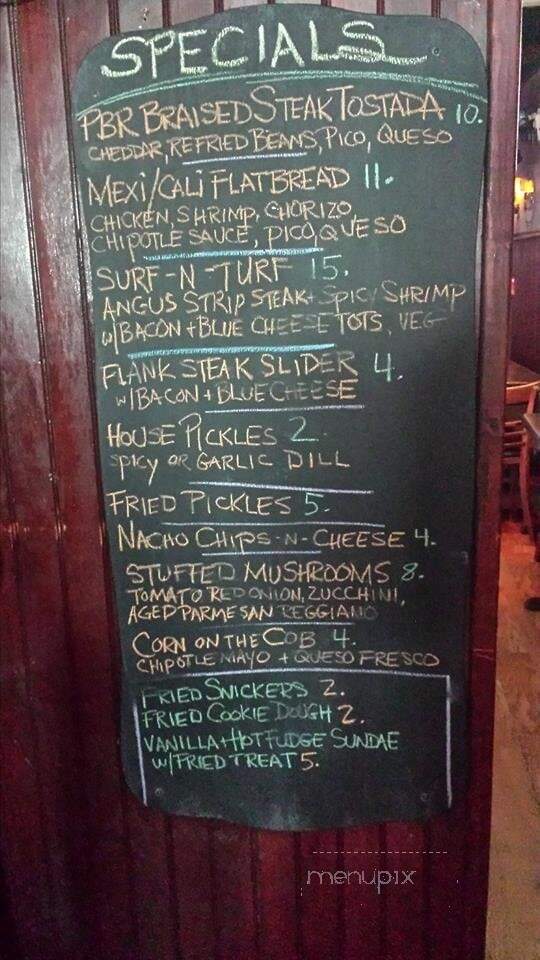 SPECIALS
PBR BRAISED STEAK TOSTADA 10.
CHEDDAR, REFRIED BEANS, PICO, QUESO
MEXI/CALI FLATBREAD 11.
CHICKEN, SHRIMP, CHORIZO,
CHIPOTLE SAUCE, PICO, QUESO
SURF-N-TURF 15.
ANGUS STRIP STEAK + SPICY SHRIMP
w/BACON + BLUE CHEESE TOTS, VEG
FLANK STEAK SLIDER 4.
w/BACON + BLUE CHEESE
HOUSE PICKLES 2.
SPICY OR GARLIC DILL
FRIED PICKLES 5.
NACHO CHIPS-N-CHEESE 4.
STUFFED MUSHROOMS 8.
TOMATO RED ONION, ZUCCHINI,
AGED PARMESAN REGGIANO
CORN ON THE COB 4.
CHIPOTLE MAYO + QUESO FRESCO
FRIED SNICKERS 2.
FRIED COOKIE DOUGH 2.
VANILLA + HOT FUDGE SUNDAE
W/FRIED TREAT 5.
menupix